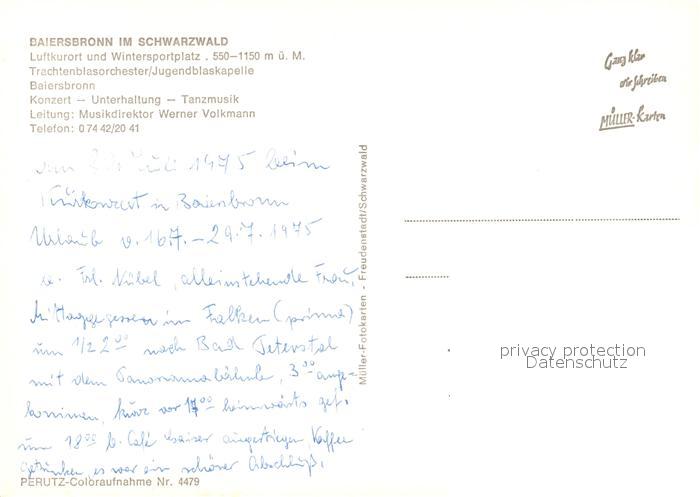 BAIERSBRONN IM SCHWARZWALD
Luftkurort und Wintersportplatz . 550–1150 m ü. M.
Trachtenblasorchester/Jugendblaskapelle
Baiersbronn
Konzert – Unterhaltung – Tanzmusik
Leitung: Musikdirektor Werner Volkmann
Telefon: 0 74 42/20 41
Juli 1975 beim
Kurkonzert in Baiersbronn
Urlaub v. 16.7. – 29.7. 1975
Frl. Nübel, alleinstehende Frau,
Mittaggegessen im Falken (prima)
um 1/2 2 00 nach Bad Peterstal
mit dem Panoramabähnle, 3 00 ange-
kommen, kurz vor 17 00 heimwärts gef.
um 18 00 b. Café ausgestiegen Kaffee
getrunken, es war ein schöner Abschluß.
PERUTZ-Coloraufnahme Nr. 4479
Müller-Fotokarten - Freudenstadt/Schwarzwald
Ganz klar
wir schreiben
MÜLLER-Karten
privacy protection
Datenschutz